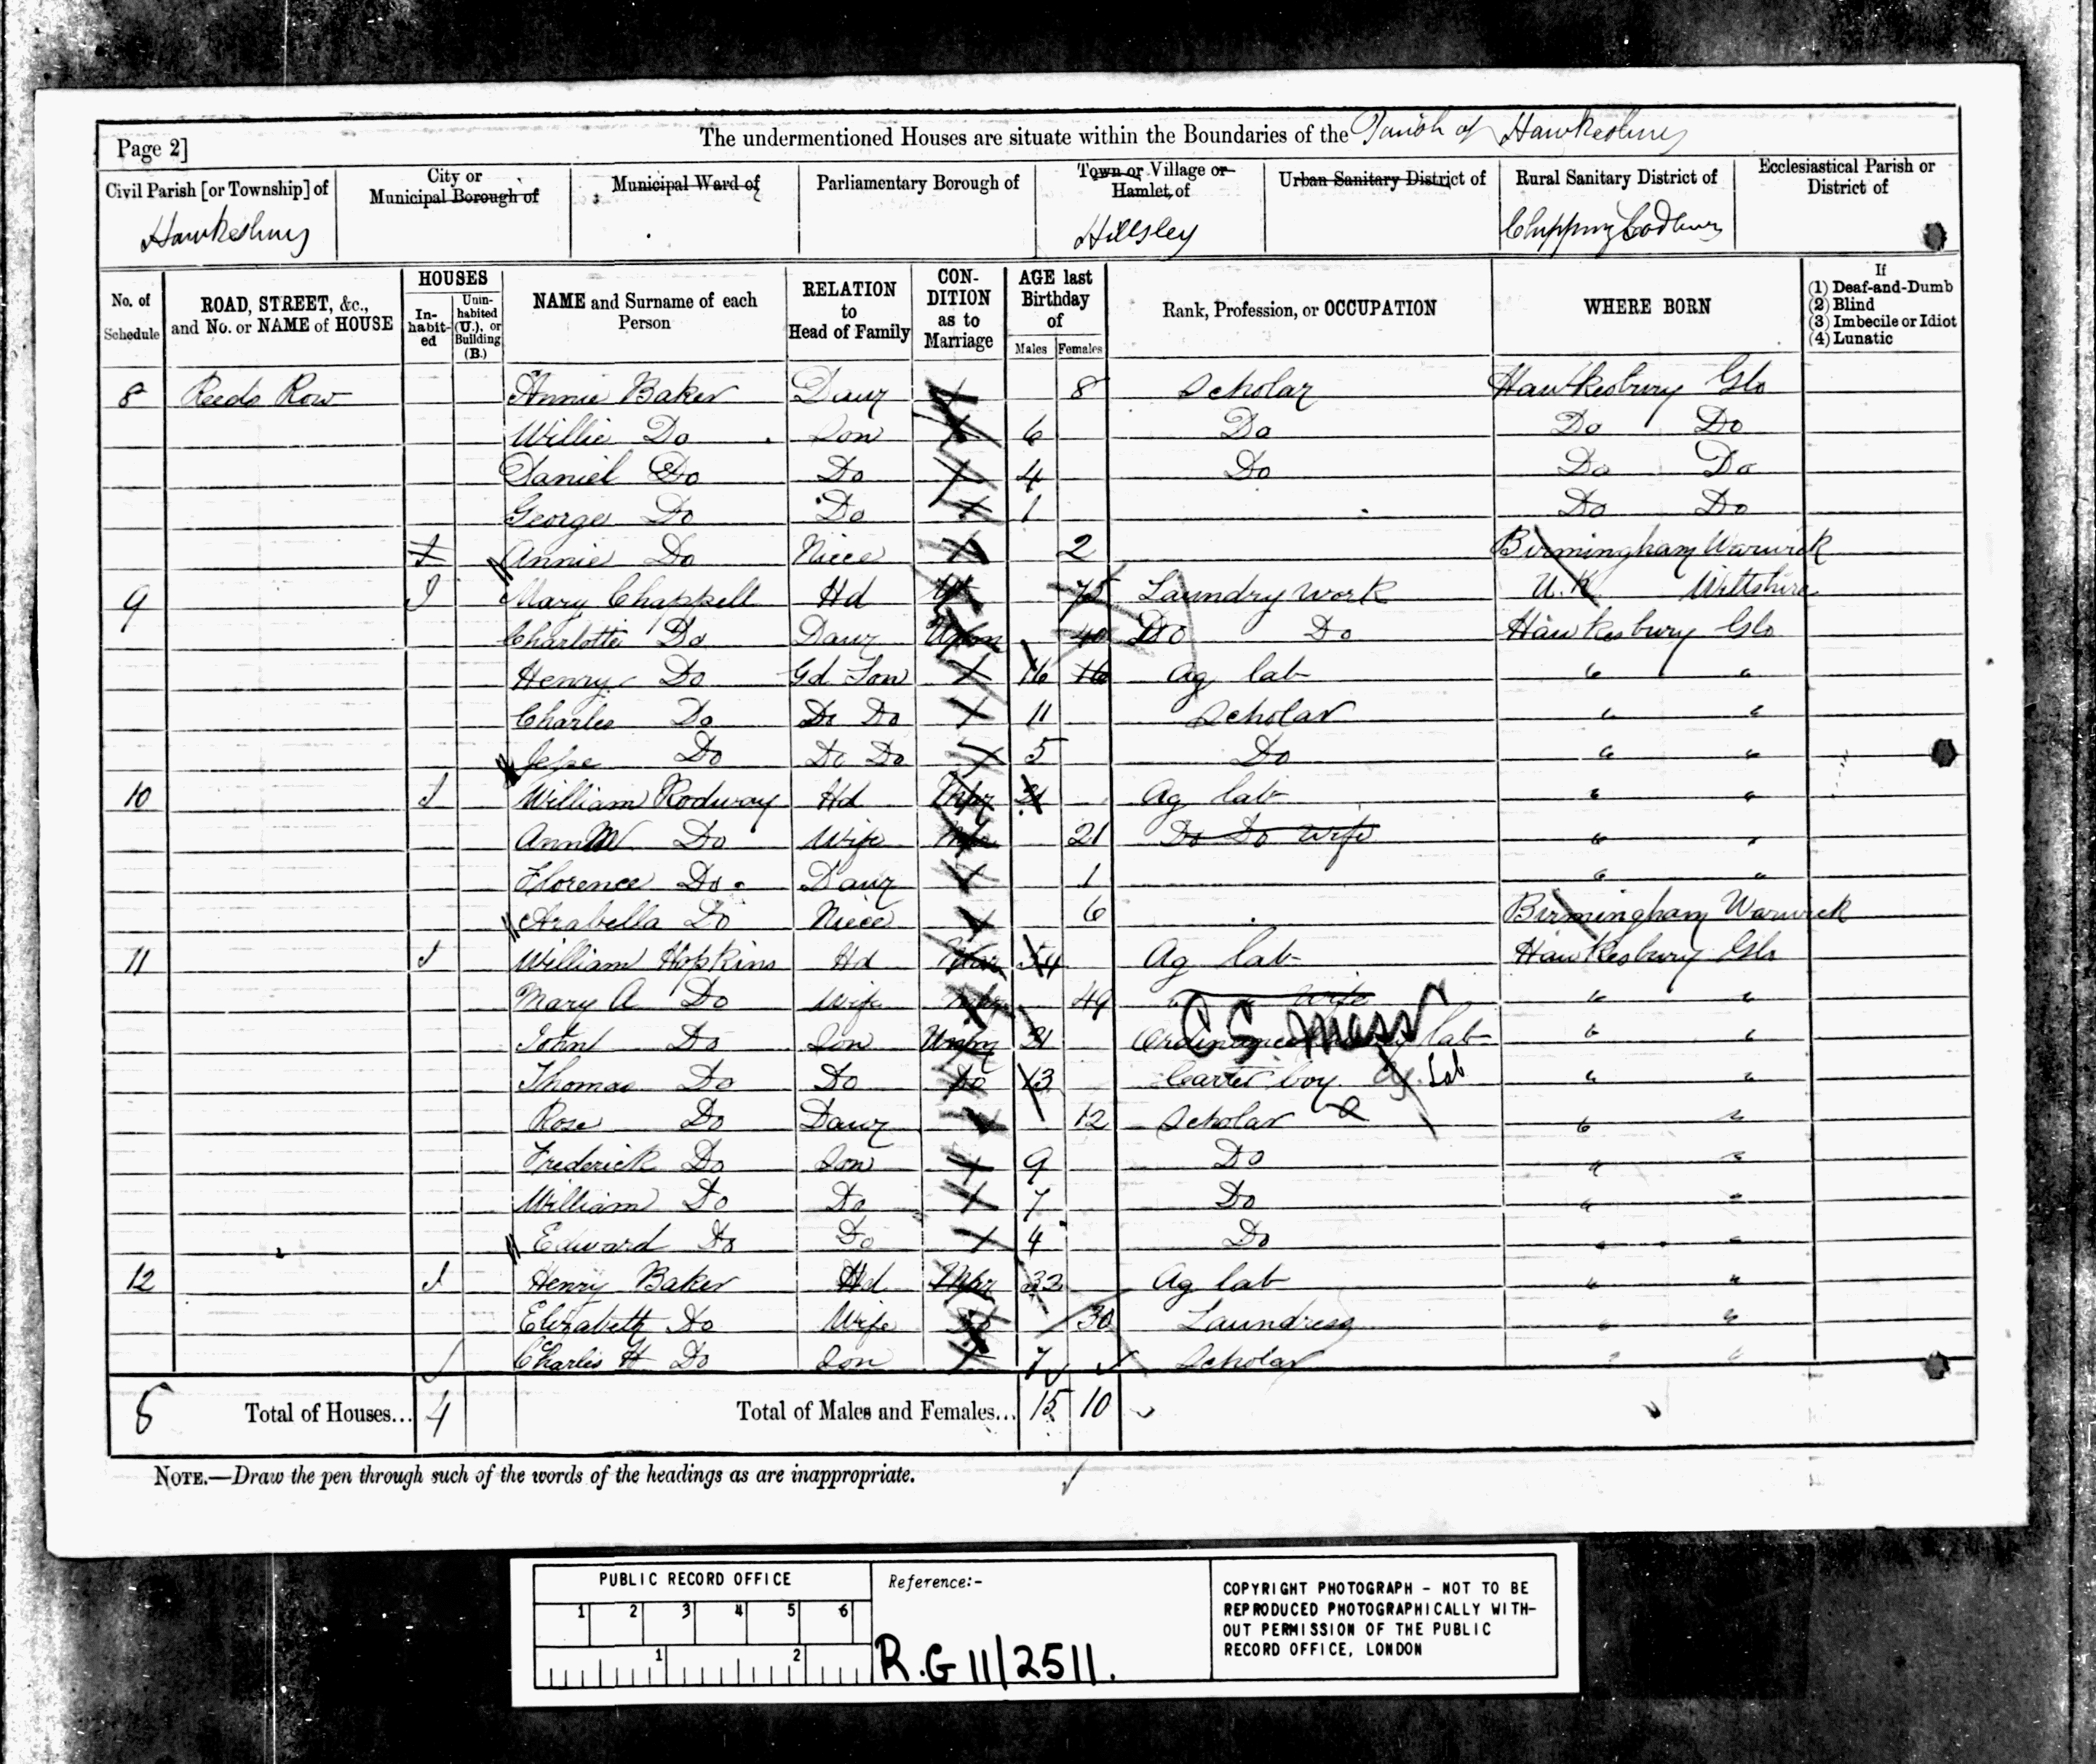 Page 2]
The undermentioned Houses are situate within the Boundaries of the Parish of Hawkesbury
Civil Parish [or Township] of
City or Municipal Borough of
Municipal Ward of
Parliamentary Borough of
Town or Village or Hamlet, of
Urban Sanitary District of
Rural Sanitary District of
Ecclesiastical Parish or District of
Hawkesbury Hillsley Chipping Sodbury
No. of Schedule
ROAD, STREET, &c., and No. or NAME of HOUSE
HOUSES
In-habit-ed
Unin-habited (U.), or Building (B.)
NAME and Surname of each Person
RELATION to Head of Family
CON-DITION as to Marriage
AGE last Birthday of
Males Females
Rank, Profession, or OCCUPATION
WHERE BORN
If
(1) Deaf-and-Dumb
(2) Blind
(3) Imbecile or Idiot
(4) Lunatic
8 Reeds Row Annie Baker Daur 8 Scholar Hawkesbury Glo
Willie Do Son 6 Do Do Do
Daniel Do Do 4 Do Do Do
George Do Do 1 Do Do
Annie Do Niece 2 Birmingham Warwick
9 I Mary Chappell Hd 75 Laundry work U.K Wiltshire
Charlotte Do Daur Unm 40 Do Do Hawkesbury Glo
Henry Do Gd Son 16 16 Ag lab " "
Charles Do Do Do 11 Scholar " "
Jesse Do Do Do 5 Do " "
10 I William Rodway Hd Mar 21 Ag lab " "
Ann M Do Wife Mar 21 Do Do wife " "
Florence Do Daur 1 " "
Arabella Do Niece 6 Birmingham Warwick
11 I William Hopkins Hd Mar 54 Ag lab Hawkesbury Glo
Mary A Do Wife Mar 49 " wife " "
John Do Son Unm 21 Ordinance lab " "
C.S. Mass
Thomas Do Do Do 13 Carter boy Ag. Lab " "
Rose Do Daur 12 Scholar " "
Frederick Do Son 9 Do " "
William Do Do 7 Do " "
Edward Do Do 4 Do " "
12 I Henry Baker Hd Mar 32 Ag lab " "
Elizabeth Do Wife Do 30 Laundress " "
Charles H Do Son 7 Scholar " "
5 Total of Houses... 4 Total of Males and Females... 15 10
NOTE.—Draw the pen through such of the words of the headings as are inappropriate.
PUBLIC RECORD OFFICE
1 2 3 4 5 6
1 2
Reference:-
R.G 11/2511.
COPYRIGHT PHOTOGRAPH - NOT TO BE
REPRODUCED PHOTOGRAPHICALLY WITH-
OUT PERMISSION OF THE PUBLIC
RECORD OFFICE, LONDON